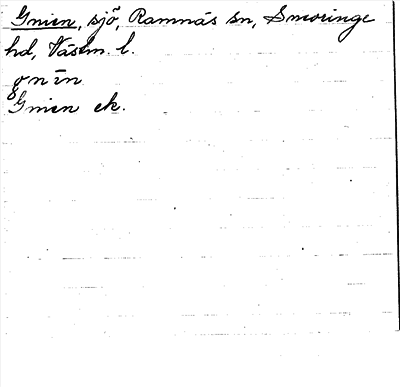 Gnien, sjö, Ramnäs sn, Snevringe
hd, Västm. l.
gnīn
Gnien ek.